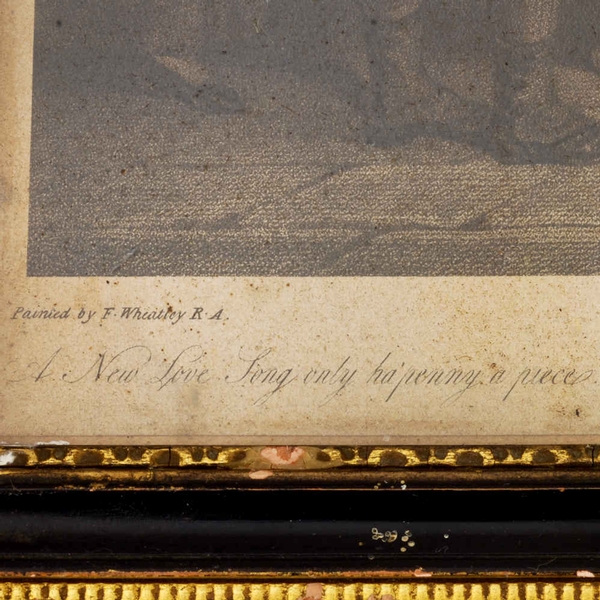 Painted by F. Wheatley R.A.
A New Love Song only ha'penny a piece.